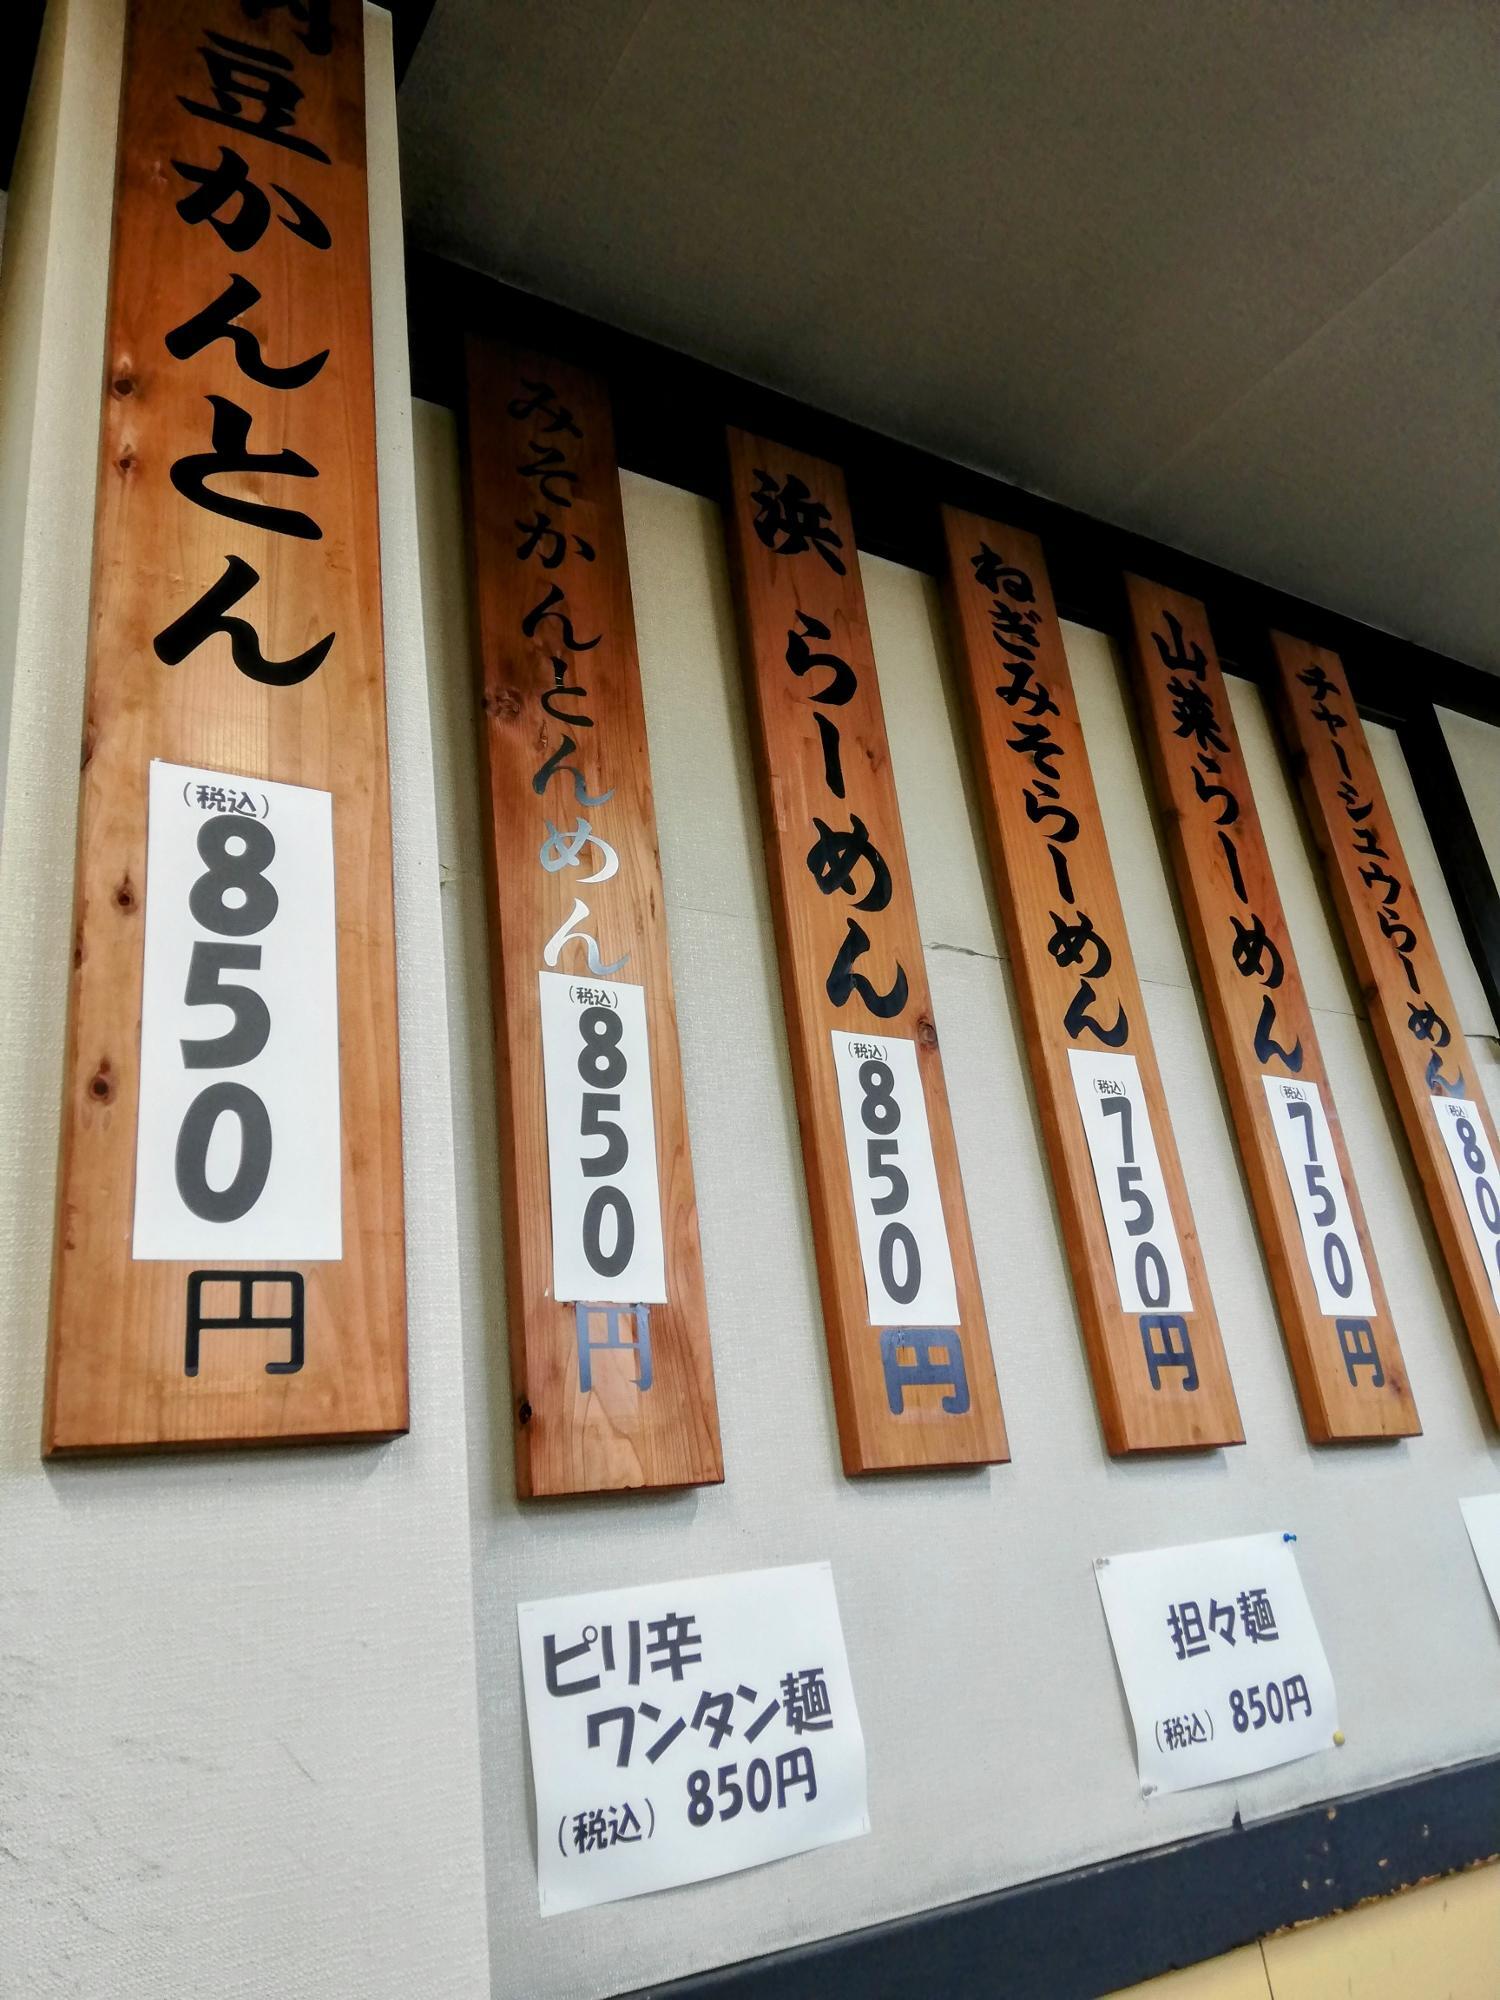 豆かんとん
(税込)
850
円
みそかんとんめん
(税込)
850
円
浜らーめん
(税込)
850
円
ねぎみそらーめん
(税込)
750
円
山菜らーめん
(税込)
750
円
チャーシュウらーめん
(税込)
800
ピリ辛
ワンタン麺
(税込) 850円
担々麺
(税込) 850円